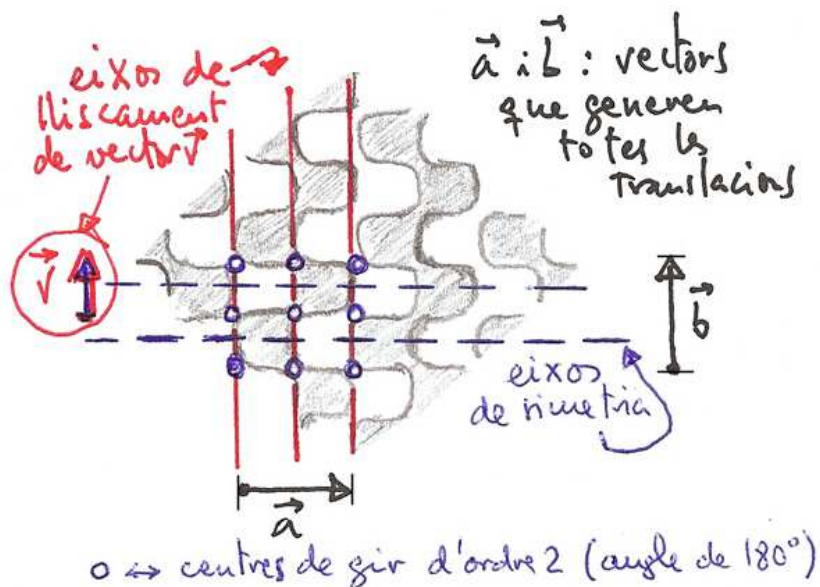 eixos de
lliscament
de vector v⃗
a⃗ i b⃗ : vectors
que generen
totes les
translacions
v⃗
b⃗
eixos
de simetria
a⃗
o ↔ centres de gir d'ordre 2 (angle de 180°)